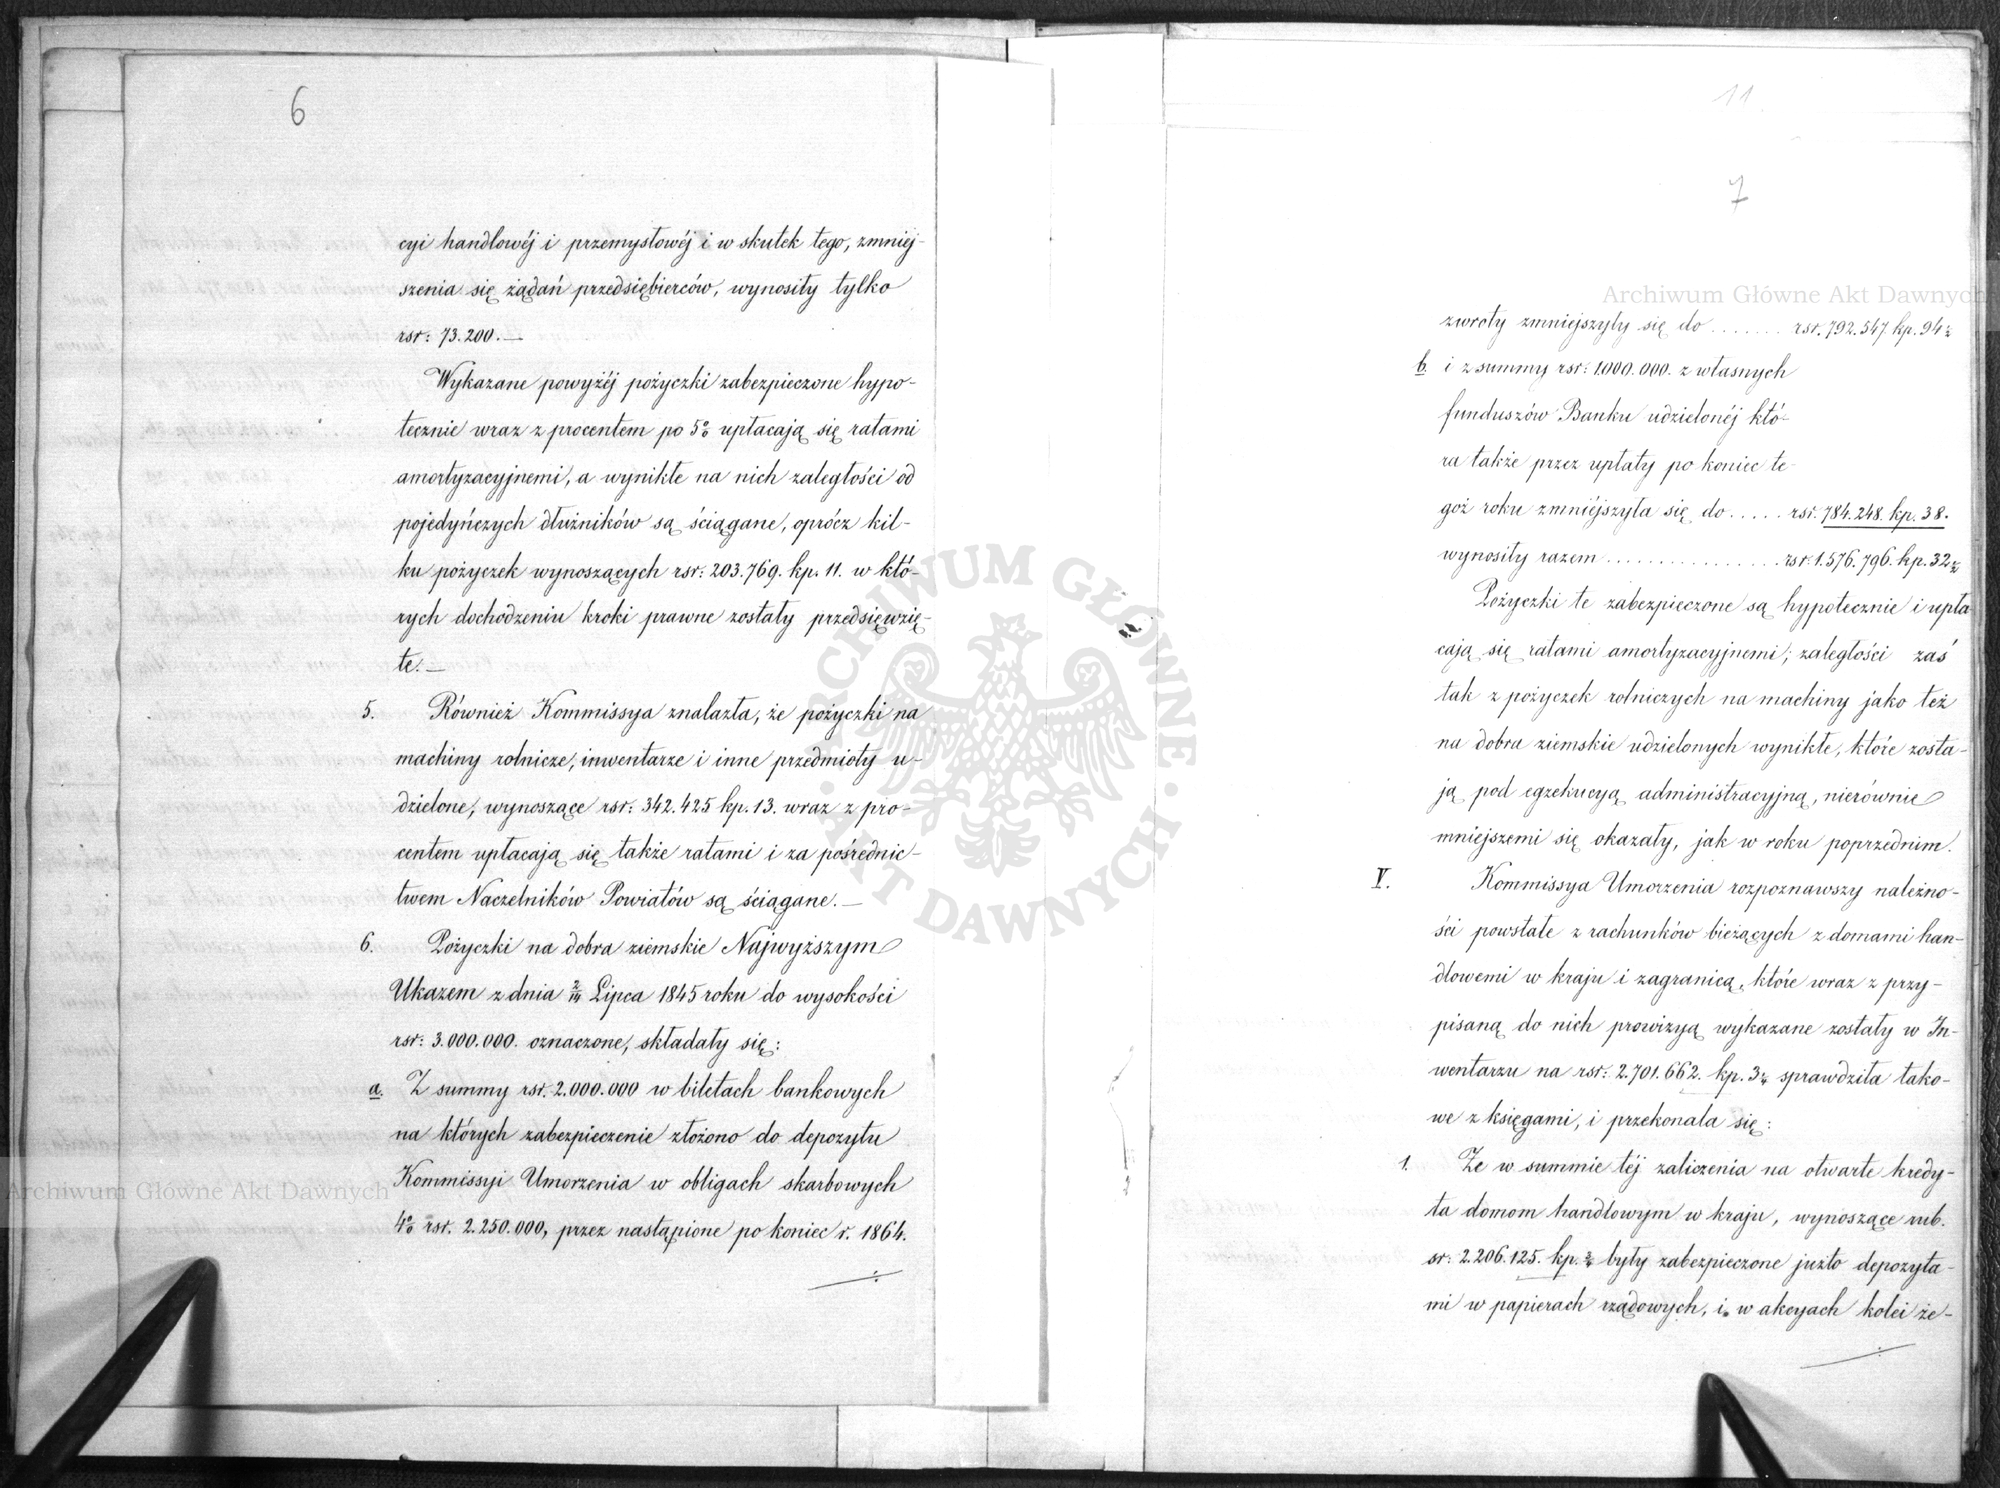 6
cyi handlowéj i przemysłowéj i w skutek tego, zmniej-
szenia się żądań przedsiębierców, wynosiły tylko
rsr: 73.200.—
Wykazane powyżéj pożyczki zabezpieczone hypo-
tecznie wraz z procentem po 5% upłacają się ratami
amortyzacyjnemi, a wynikłe na nich zaległości od
pojedyńczych dłużników są ściągane, oprócz kil-
ku pożyczek wynoszących rsr: 203.769. kp. 11. w któ-
rych dochodzeniu kroki prawne zostały przedsięwzię-
te.—
5. Również Kommissya znalazła, że pożyczki na
machiny rolnicze, inwentarze i inne przedmioty u-
dzielone, wynoszące rsr: 342.425 kp. 13. wraz z pro-
centem upłacają się także ratami i za pośrednic-
twem Naczelników Powiatów są ściągane.—
6. Pożyczki na dobra ziemskie Najwyższym
Ukazem z dnia 2/14 Lipca 1845 roku do wysokości
rsr: 3.000.000. oznaczone, składały się:
a. Z summy rsr. 2.000.000 w biletach bankowych
na których zabezpieczenie złożono do depozytu
Kommissyi Umorzenia w obligach skarbowych
4% rsr. 2.250.000, przez nastąpione po koniec r. 1864.
11.
7
zwroty zmniejszyły się do ....... rsr. 792.547. kp. 94½
b. i z summy rsr: 1.000.000. z własnych
funduszów Banku udzielonéj któ-
ra także przez upłaty po koniec te-
goż roku zmniéjszyła się do ..... rsr. 784.248. kp. 38.
wynosiły razem ................ rsr: 1.576.796. kp. 32½
Pożyczki te zabezpieczone są hypotecznie i upła
cają się ratami amortyzacyjnemi; zaległości zaś
tak z pożyczek rolniczych na machiny jako też
na dobra ziemskie udzielonych wynikłe, które zosta-
ją pod egzekucyą administracyjną, nierównie
mniejszemi się okazały, jak w roku poprzednim.
V. Kommissya Umorzenia rozpoznawszy należno-
ści powstałe z rachunków bieżących z domami han-
dlowemi w kraju i zagranicą, które wraz z przy-
pisaną do nich prowizyą wykazane zostały w In-
wentarzu na rsr: 2.701.662. kp. 3¼ sprawdziła tako-
we z księgami, i przekonała się:
1. Że w summie téj zaliczenia na otwarte kredy-
ta domom handlowym w kraju, wynoszące rub.
sr: 2.206.125. kp. ¾ były zabezpieczone jużto depozyta-
mi w papierach rządowych, i w akcyach kolei że-
Archiwum Główne Akt Dawnych
Archiwum Główne Akt Dawnych
ARCHIWUM GŁÓWNE AKT DAWNYCH